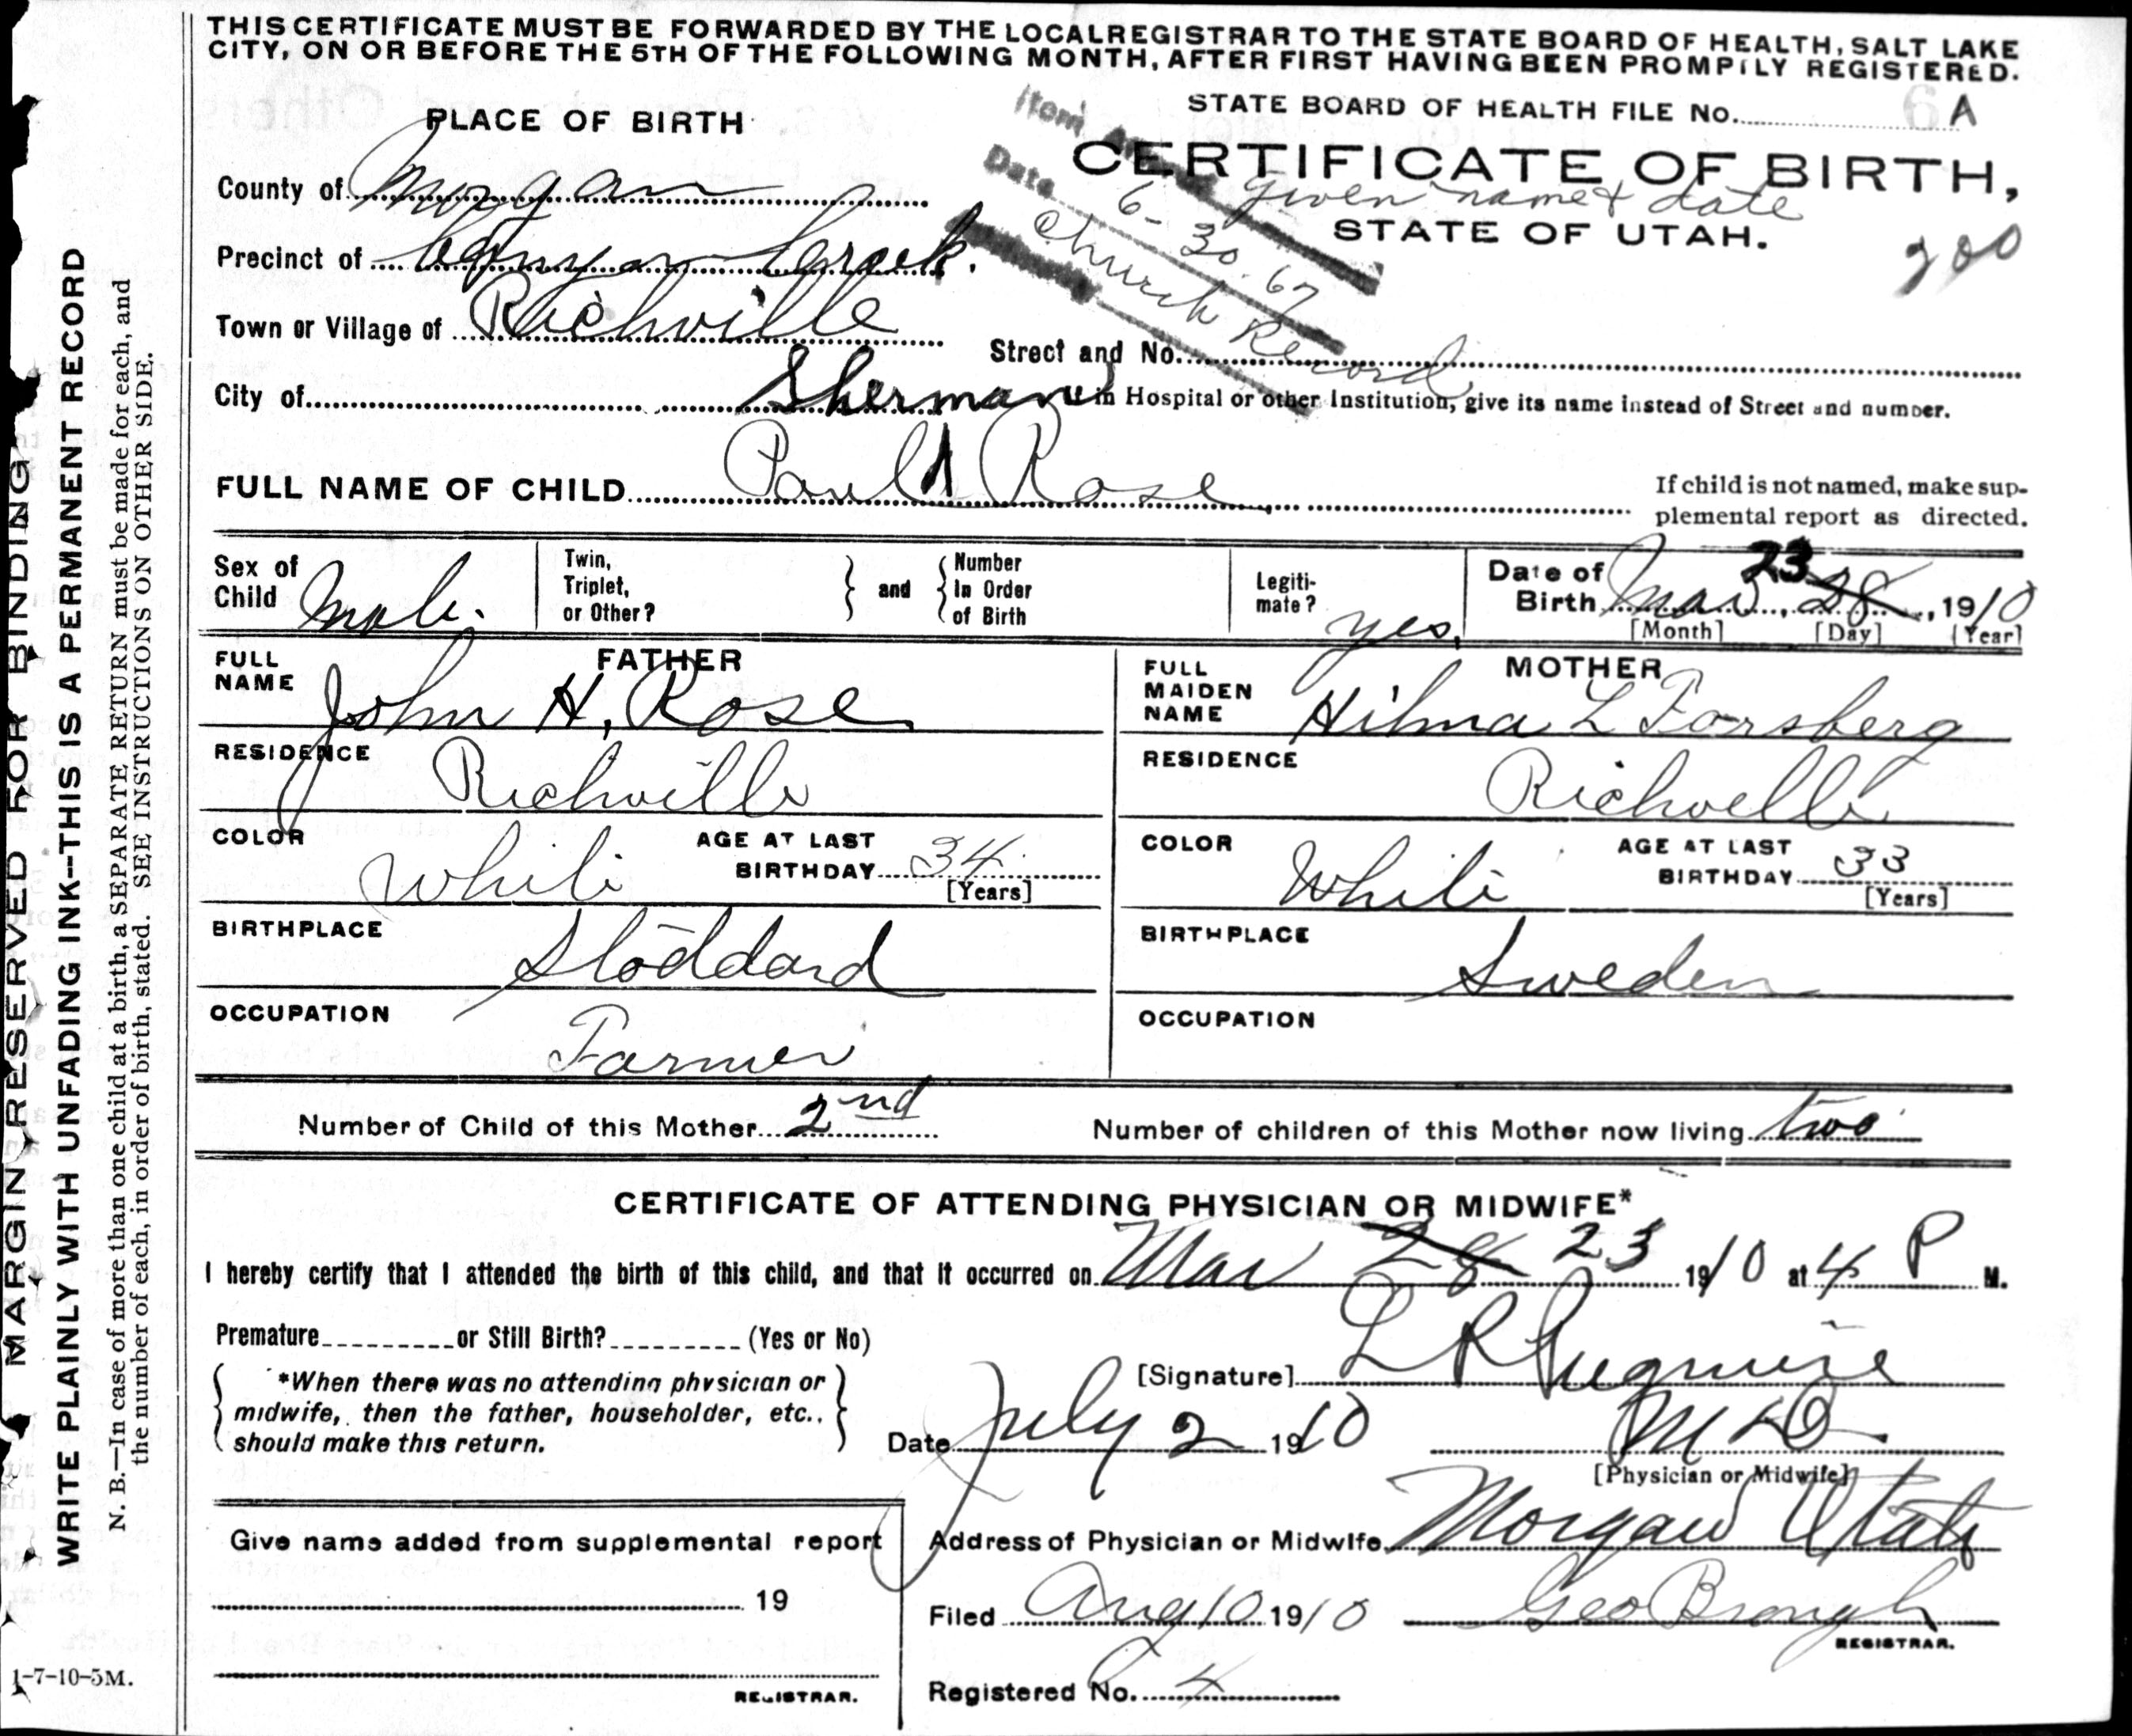 THIS CERTIFICATE MUST BE FORWARDED BY THE LOCAL REGISTRAR TO THE STATE BOARD OF HEALTH, SALT LAKE
CITY, ON OR BEFORE THE 5TH OF THE FOLLOWING MONTH, AFTER FIRST HAVING BEEN PROMPTLY REGISTERED.
STATE BOARD OF HEALTH FILE No. A
PLACE OF BIRTH
CERTIFICATE OF BIRTH,
given name & date
STATE OF UTAH.
200
Item
Date 6-30-67
Church Record
County of Morgan
Precinct of Canyon Creek.
Town or Village of Richville
Street and No.
City of
in Hospital or other Institution, give its name instead of Street and number.
Sherman
FULL NAME OF CHILD Paul Rose
If child is not named, make sup-
plemental report as directed.
Sex of Child Male.
Twin, Triplet, or Other?
and
Number In Order of Birth
Legiti-mate? yes,
Date of Birth Mar, 28 23, 1910
[Month] [Day] [Year]
FATHER
FULL NAME John H. Rose
RESIDENCE Richville
COLOR White
AGE AT LAST BIRTHDAY 34 [Years]
BIRTHPLACE Stoddard
OCCUPATION Farmer
MOTHER
FULL MAIDEN NAME Hilma L Forsberg
RESIDENCE Richville
COLOR White
AGE AT LAST BIRTHDAY 33 [Years]
BIRTHPLACE Sweden
OCCUPATION
Number of Child of this Mother 2nd
Number of children of this Mother now living two
CERTIFICATE OF ATTENDING PHYSICIAN OR MIDWIFE*
I hereby certify that I attended the birth of this child, and that it occurred on Mar 28 23 1910 at 4 P M.
Premature or Still Birth? (Yes or No)
*When there was no attending physician or
midwife, then the father, householder, etc.,
should make this return.
[Signature] L R
Date July 2 1910
M D
[Physician or Midwife]
Address of Physician or Midwife Morgan Utah
Filed Aug 10 1910 Geo Brough
REGISTRAR.
Registered No. 4
Give name added from supplemental report
19
REGISTRAR.
MARGIN RESERVED FOR BINDING
WRITE PLAINLY WITH UNFADING INK--THIS IS A PERMANENT RECORD
N. B.—In case of more than one child at a birth, a SEPARATE RETURN must be made for each, and
the number of each, in order of birth, stated. SEE INSTRUCTIONS ON OTHER SIDE.
1-7-10-5M.